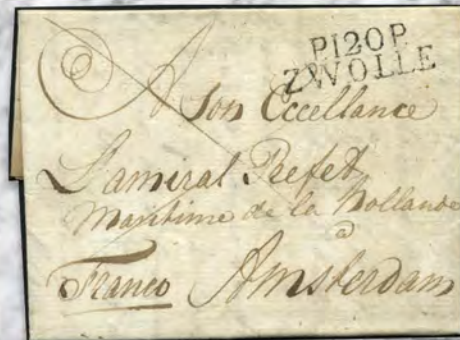 P120P
ZWOLLE
A Son Excellance
L'amiral Prefet
Maritime de la Hollande
a
Franco Amsterdam